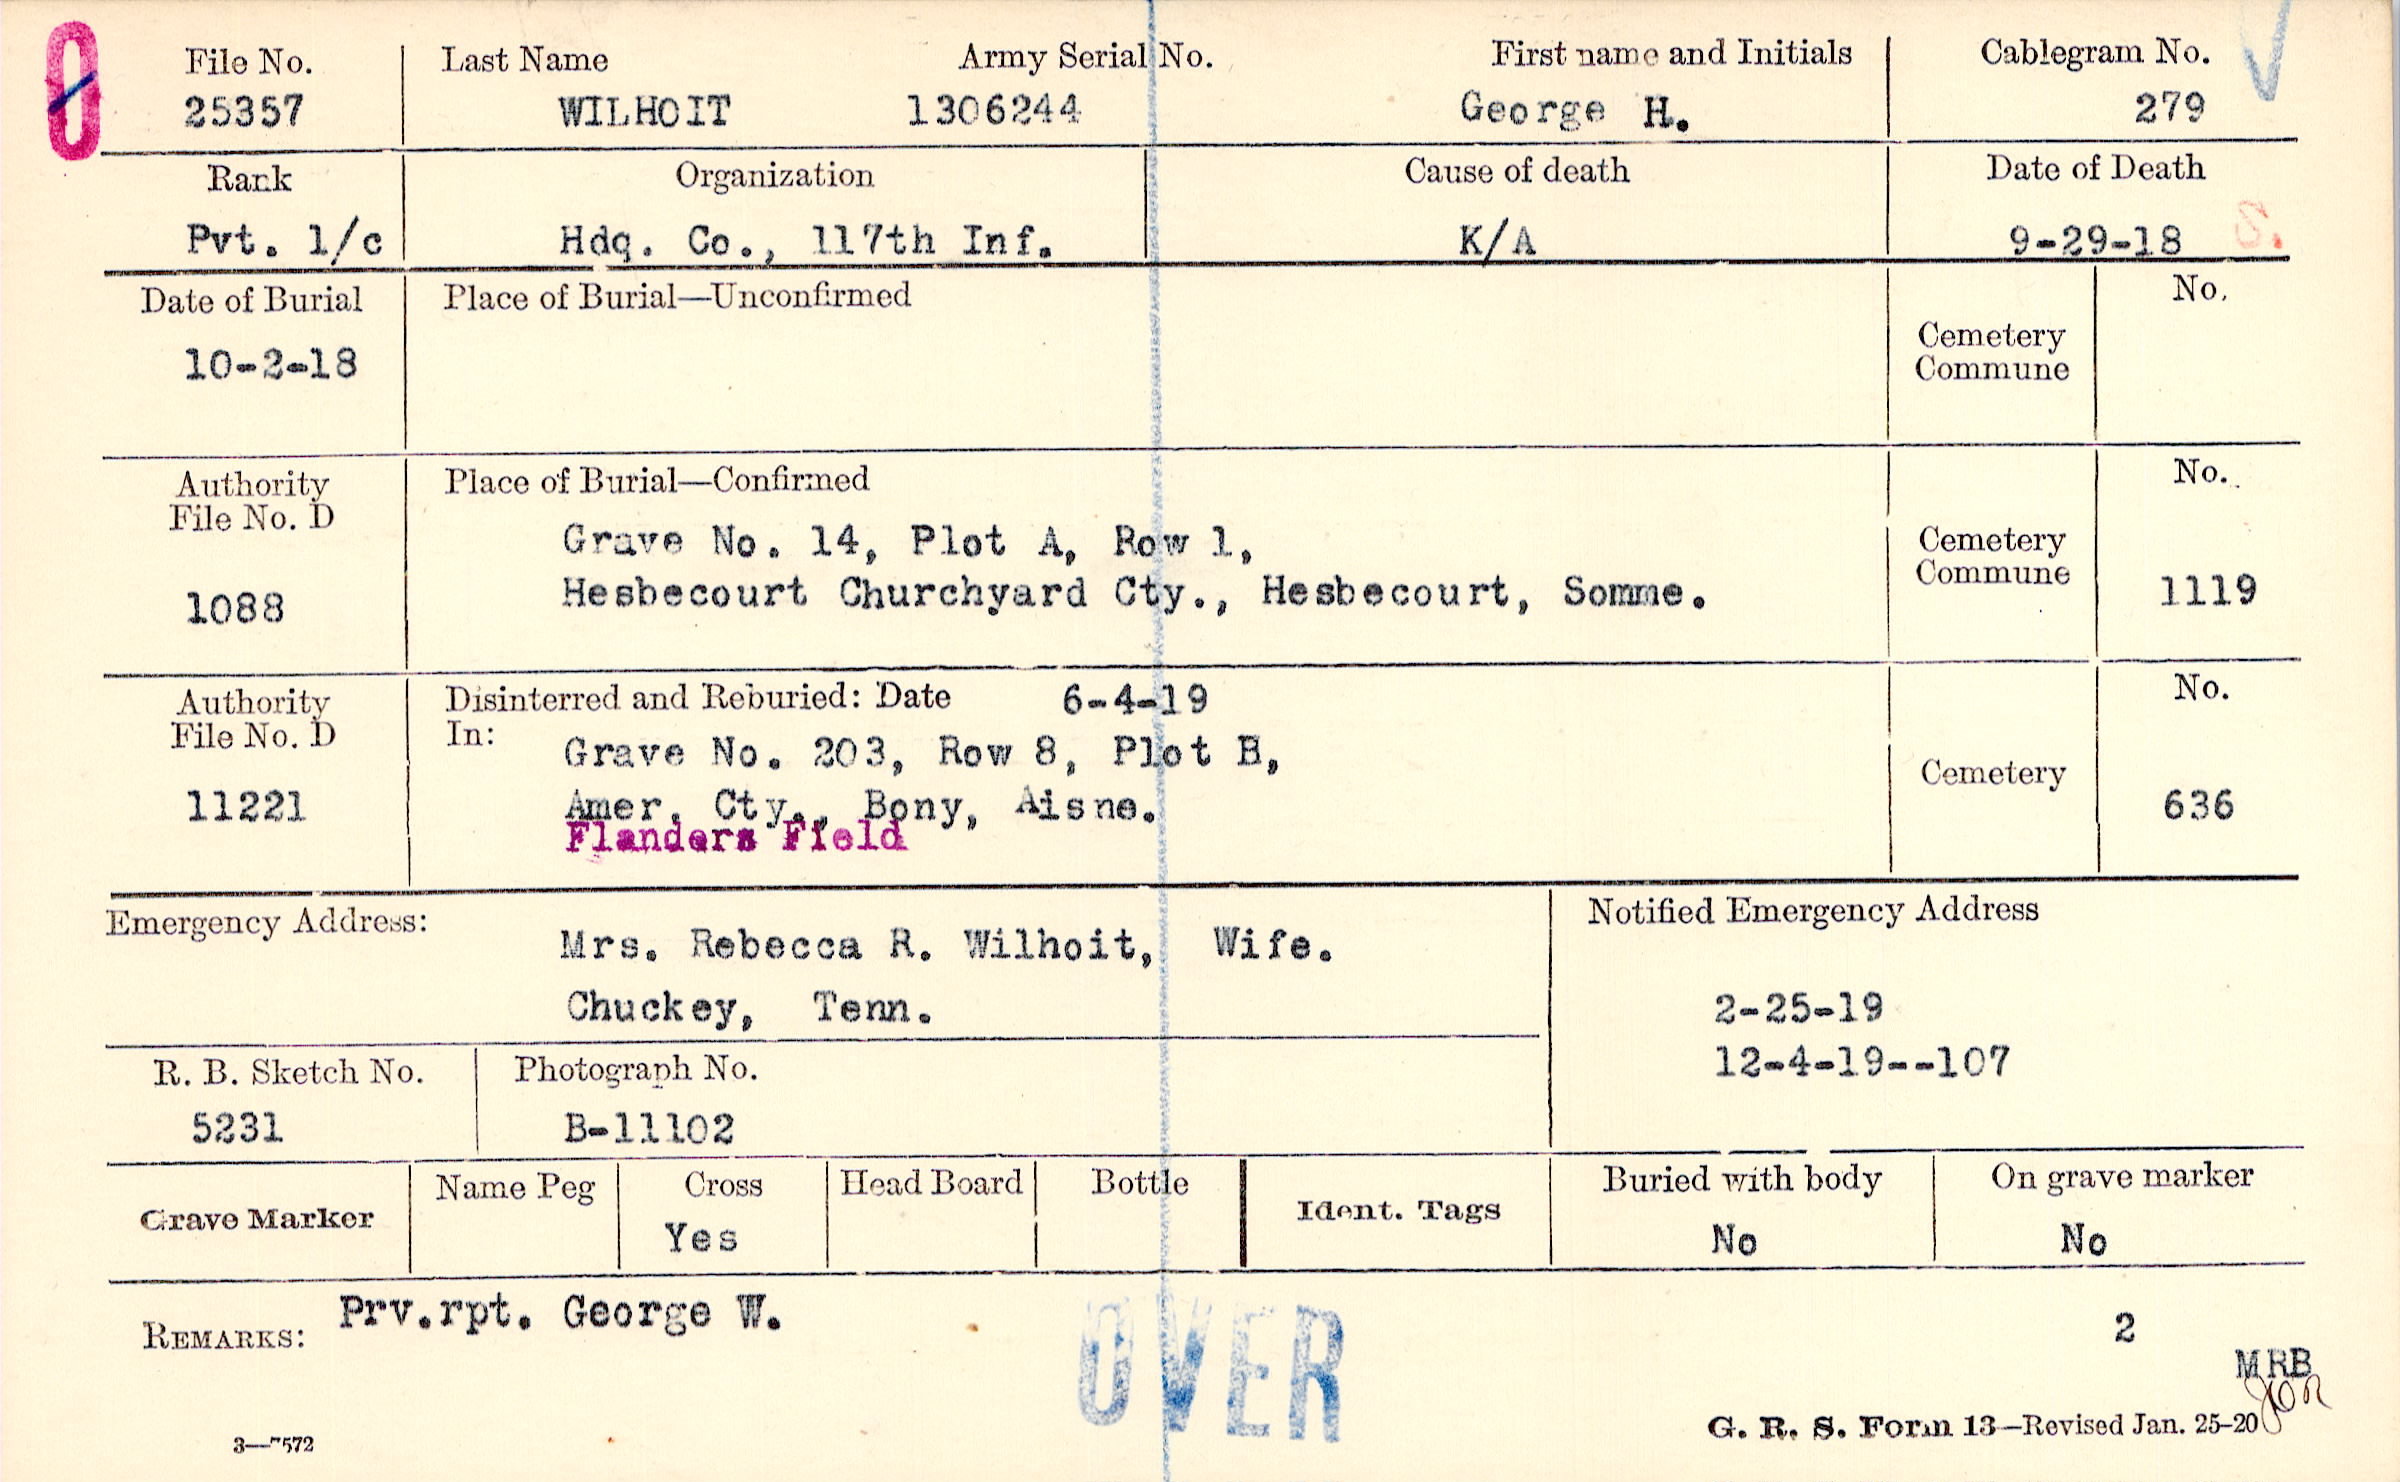 0
File No. Last Name Army Serial No. First name and Initials Cablegram No.
25357 WILHOIT 1306244 George H. 279
Rank Organization Cause of death Date of Death
Pvt. 1/c Hdq. Co., 117th Inf. K/A 9-29-18 S.
Date of Burial Place of Burial—Unconfirmed No.
10-2-18 Cemetery
Commune
Authority Place of Burial—Confirmed No.
File No. D
Grave No. 14, Plot A, Row 1, Cemetery
1088 Hesbecourt Churchyard Cty., Hesbecourt, Somme. Commune 1119
Authority Disinterred and Reburied: Date 6-4-19 No.
File No. D In: Grave No. 203, Row 8, Plot B, Cemetery
11221 Amer. Cty., Bony, Aisne. 636
Flanders Field
Emergency Address: Notified Emergency Address
Mrs. Rebecca R. Wilhoit, Wife.
Chuckey, Tenn. 2-25-19
R. B. Sketch No. Photograph No. 12-4-19--107
5231 B-11102
Grave Marker Name Peg Cross Head Board Bottle Ident. Tags Buried with body On grave marker
Yes No No
REMARKS: Prv.rpt. George W. 2
OVER MRB
3—7572 G. R. S. Form 13—Revised Jan. 25-20